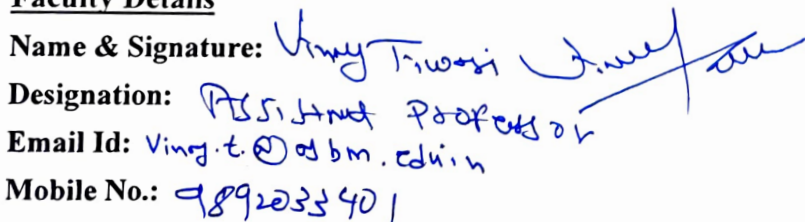 Faculty Details
Name & Signature: Vinay Tiwari
Designation: Assistant Professor
Email Id: Vinay.t.@osbm.edu.in
Mobile No.: 9892033401